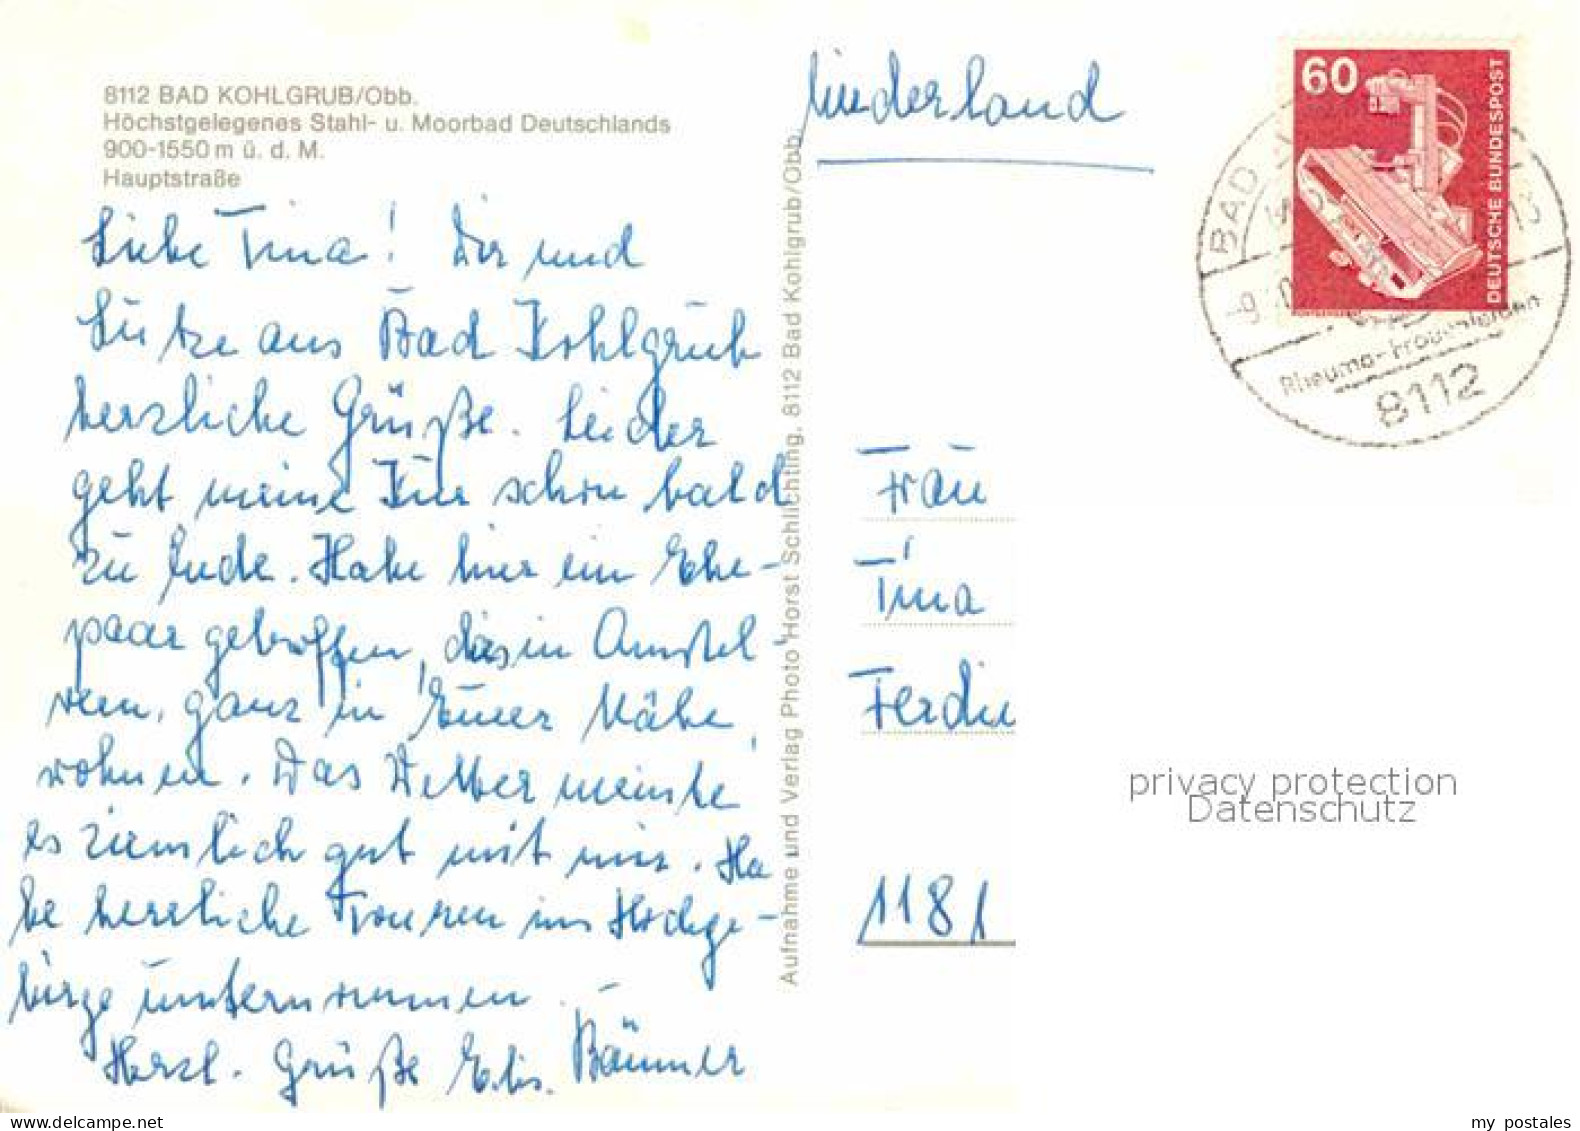 8112 BAD KOHLGRUB/Obb.
Höchstgelegenes Stahl- u. Moorbad Deutschlands
900-1550 m ü. d. M.
Hauptstraße
Liebe Tina! Dir und
Lütze aus Bad Kohlgrub
herzliche Grüße. Leider
geht meine Kur schon bald
zu Ende. Habe hier ein Ehe-
paar getroffen, die in Amstel-
veen, ganz in Eurer Nähe,
wohnen. Das Wetter meinte
es ziemlich gut mit mir. Ha
be herrliche Touren ins Hochge-
birge unternommen. -
Herzl. Grüße Elis. Bäumer
Aufnahme und Verlag Photo Horst Schlichting, 8112 Bad Kohlgrub/Obb.
Niederland
60
DEUTSCHE BUNDESPOST
BAD
Rheuma-Frauenleiden
8112
Frau
Tina
Ferdin
1181
privacy protection
Datenschutz
my postales